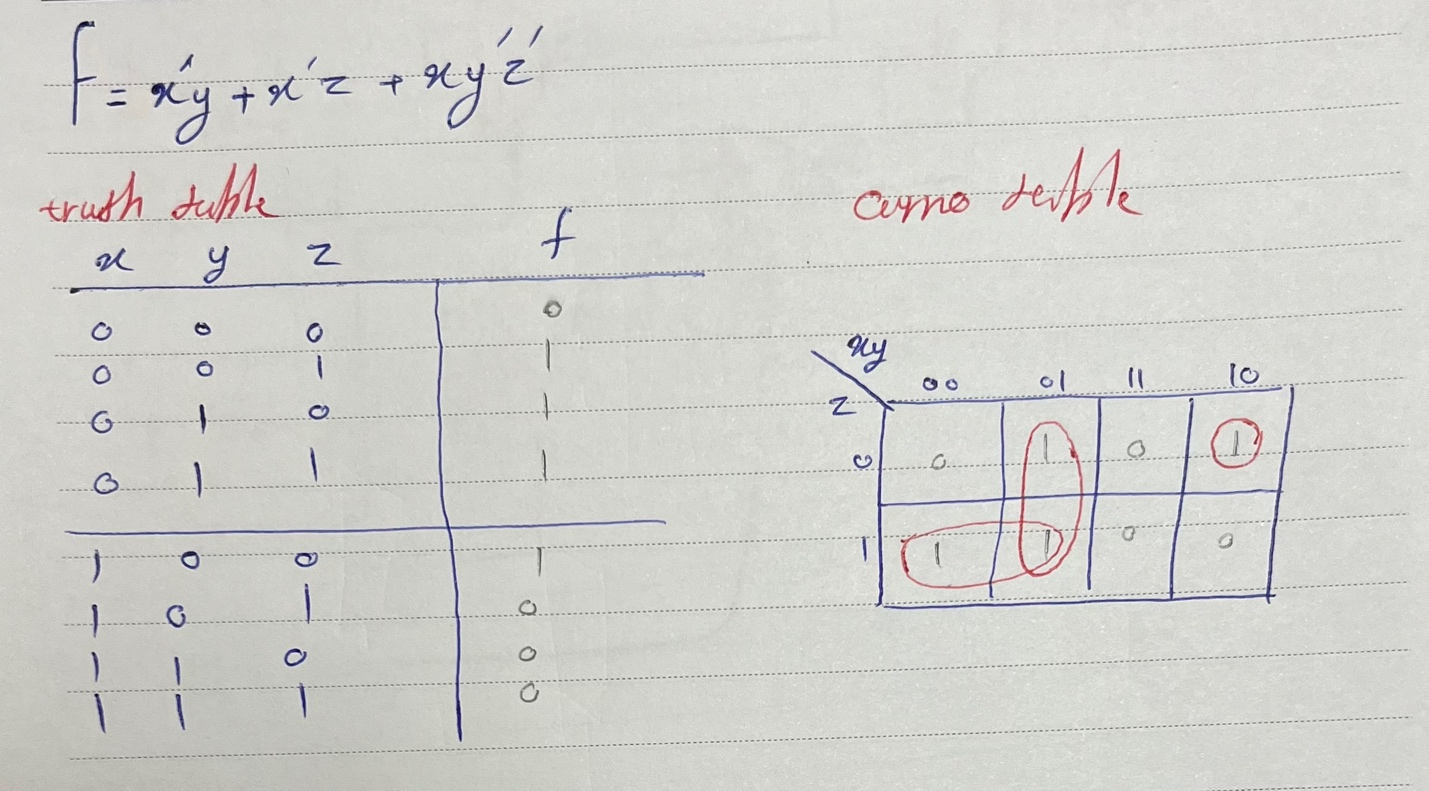 f = x'y + x'z + xy'z'
truth table
x y z f
0 0 0 0
0 0 1 1
0 1 0 1
0 1 1 1
1 0 0 1
1 0 1 0
1 1 0 0
1 1 1 0
carno table
xy
z 00 01 11 10
0 0 1 0 1
1 1 1 0 0